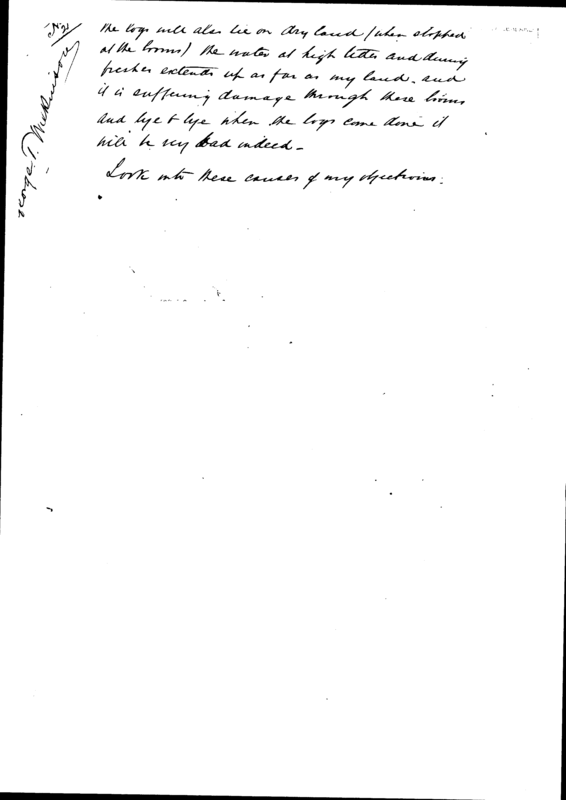 No 2
George T. Wilkinson
the logs will also lie on dry land (when stopped
at the booms) the water at high tides and during
freshes extends up as far as my land. and
it is suffering damage through these booms
and bye & bye when the logs come down it
will be very bad indeed -
Look into these causes of my objections.